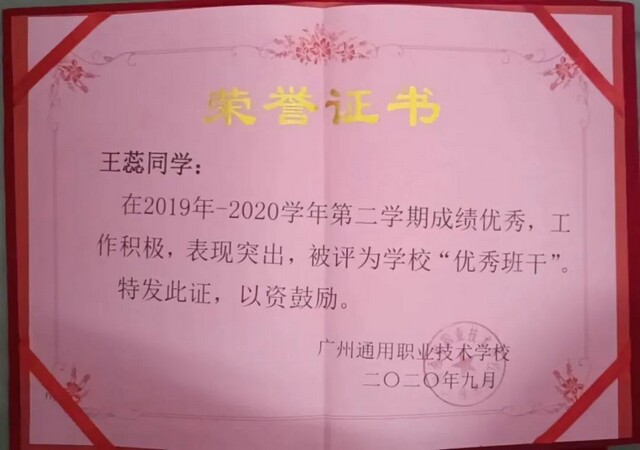 荣誉证书
王蕊同学：
在2019年-2020学年第二学期成绩优秀，工
作积极，表现突出，被评为学校“优秀班干”。
特发此证，以资鼓励。
广州通用职业技术学校
二〇二〇年九月